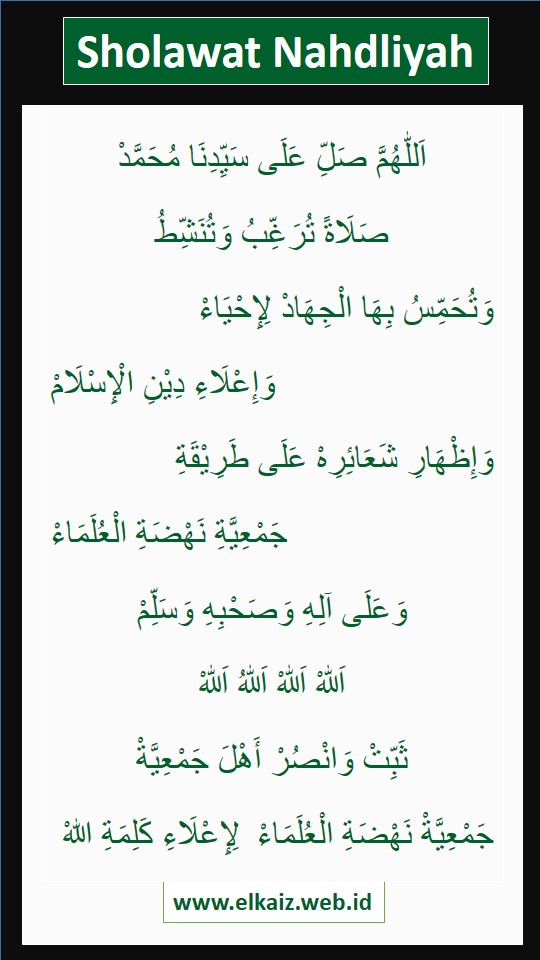 Sholawat Nahdliyah
اَللّٰهُمَّ صَلِّ عَلَى سَيِّدِنَا مُحَمَّدْ
صَلَاةً تُرَغِّبُ وَتُنَشِّطُ
وَتُحَمِّسُ بِهَا الْجِهَادْ لِإِحْيَاءْ
وَإِعْلَاءِ دِيْنِ الْإِسْلَامْ
وَإِظْهَارِ شَعَائِرِهْ عَلَى طَرِيْقَةِ
جَمْعِيَّةِ نَهْضَةِ الْعُلَمَاءْ
وَعَلَى آلِهِ وَصَحْبِهِ وَسَلِّمْ
اَللهْ اَللهْ اَللهُ اَللهْ
ثَبِّتْ وَانْصُرْ أَهْلَ جَمْعِيَّةْ
جَمْعِيَّةْ نَهْضَةِ الْعُلَمَاءْ لِإِعْلَاءِ كَلِمَةِ اللهْ
www.elkaiz.web.id